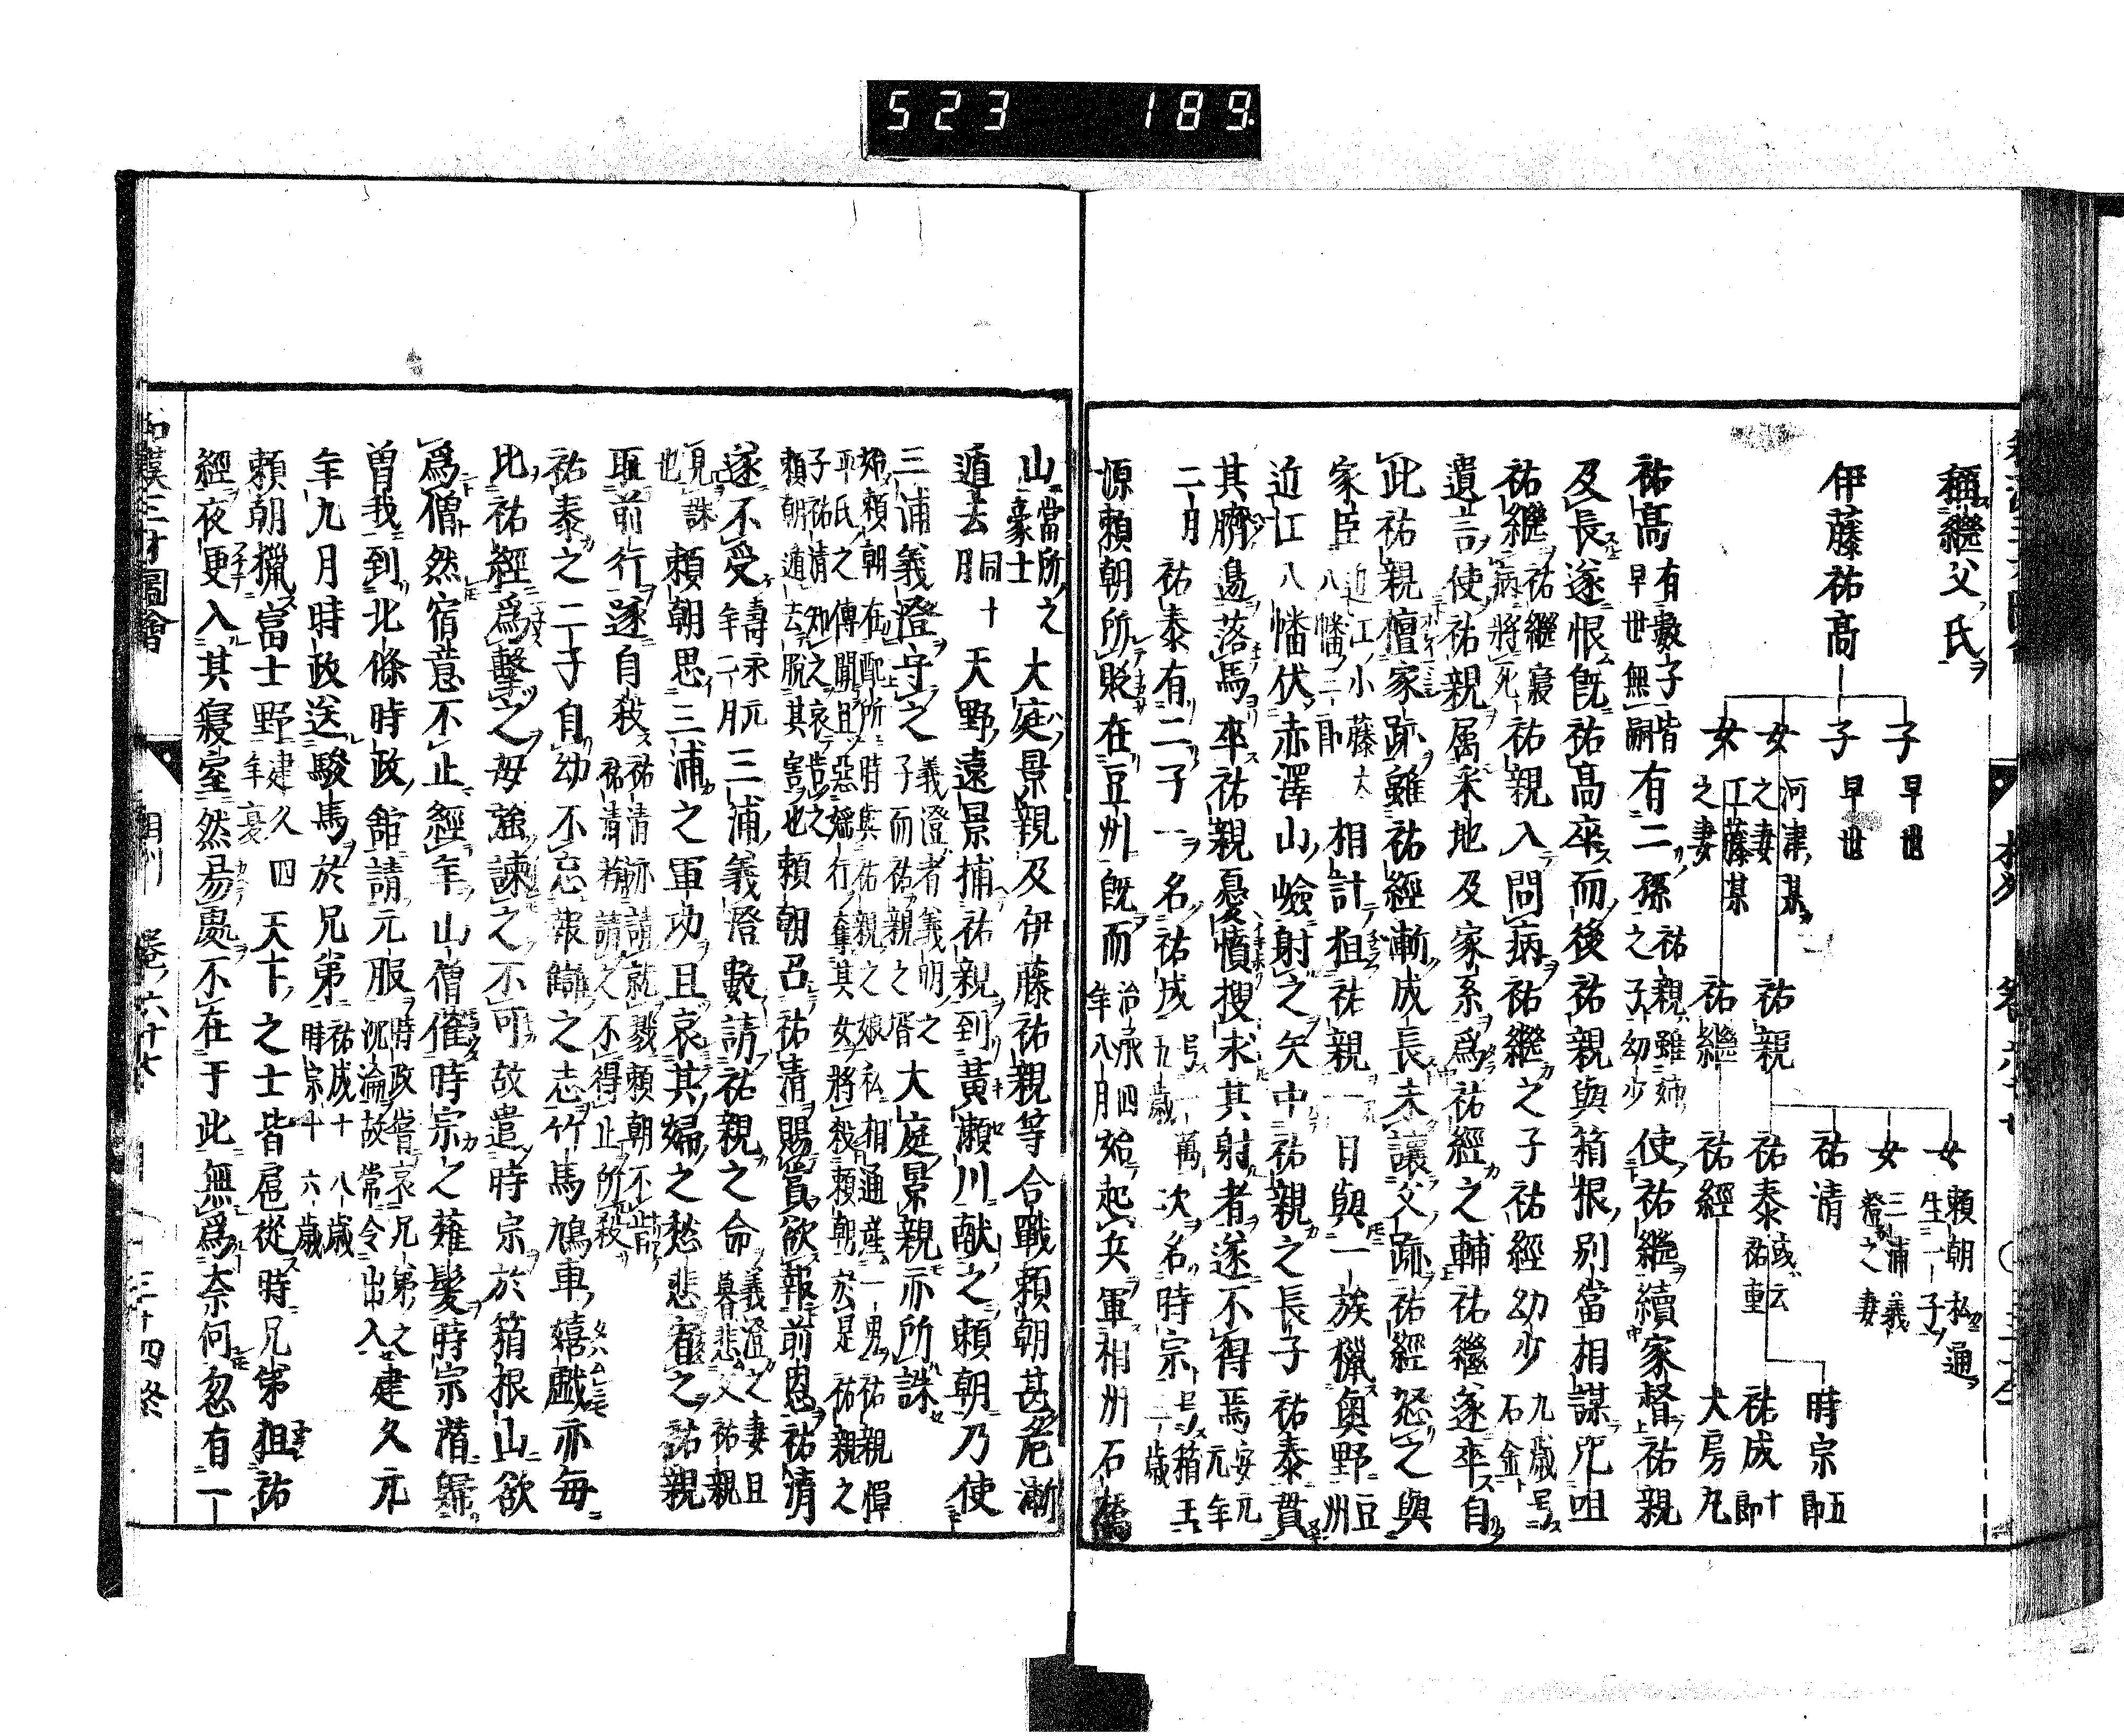 523 189.
稱繼父氏
伊藤祐高
子 早世
子 早世
女 河津某之妻 祐親
女 工藤某之妻 祐繼
女 頼朝私通生一子
女 三浦義澄之妻
祐清
祐泰 或云祐重
祐經
時宗 五郎
祐成 十郎
犬房丸
祐高 有數子皆早世無嗣 有二孫 祐親雖姉之子幼少 使祐繼續家督祐親
及長遂恨既祐高卒而後祐親與箱根別當相謀咒咀
祐繼 祐繼寢病將死 祐親入問病祐繼之子祐經幼少 九歳号石金
遺言使祐親属釆地及家系爲祐經之輔祐繼遂卒自
此祐親擅家跡雖祐經漸成長未讓父跡祐經怒之與
家臣 近江小藤太八幡三郎 相計狙祐親一日與一族獵奥野 豆州
近江八幡伏赤澤山嶮射之矢中祐親之長子祐泰貫
其臍邉落馬卒祐親憂憤捜求其射者遂不得焉 安元元年
二月 祐泰有二子一名祐成 号一萬五歳 次名時宗 号箱王三歳
源頼朝所貶在豆州既而 治承四年八月 始起兵軍相州石橋
山 當所之豪士 大庭景親及伊藤祐親等合戰頼朝甚危漸
遁去 同月 十 天野遠景捕祐親到黄瀬川献之頼朝乃使
三浦義澄守之 義澄者義明之子而祐親之壻 大庭景親亦所誅
始頼朝在配所時與祐親之娘私相通産一男祐親憚
平氏之傳聞且惡婬行奪其女將殺頼朝於是祐親之
子祐清知之哀告之
頼朝遁去脱其害也 頼朝召祐清賜賞欲報前恩祐清
遂不受 壽永元年二月 三浦義澄數請祐親之命 義澄之妻且暮悲父祐親
見誅也 頼朝思三浦之軍功且哀其婦之愁悲宥之祐親
耻前行遂自殺 祐清亦請就戮頼朝不許祐清糓請之不得止所殺
祐泰之二子自幼不忘報讎之志竹馬鳩車嬉戯亦毎
比祐經爲撃之母強諫之不可故遣時宗於箱根山欲
爲僧然宿意不止經年山僧催時宗之薙髪時宗潜歸
曽我到北條時政舘請元服 時政嘗哀兄弟之沉淪故常令出入 建久元
年九月時政送駿馬於兄弟 祐成十八歳時宗十六歳
頼朝獵富士野 建久四年夏 天下之士皆扈從時兄弟狙祐
經夜更入其寢室然易處不在于此無爲奈何忽有一
和漢三才圖會 卷六十七 三十四終